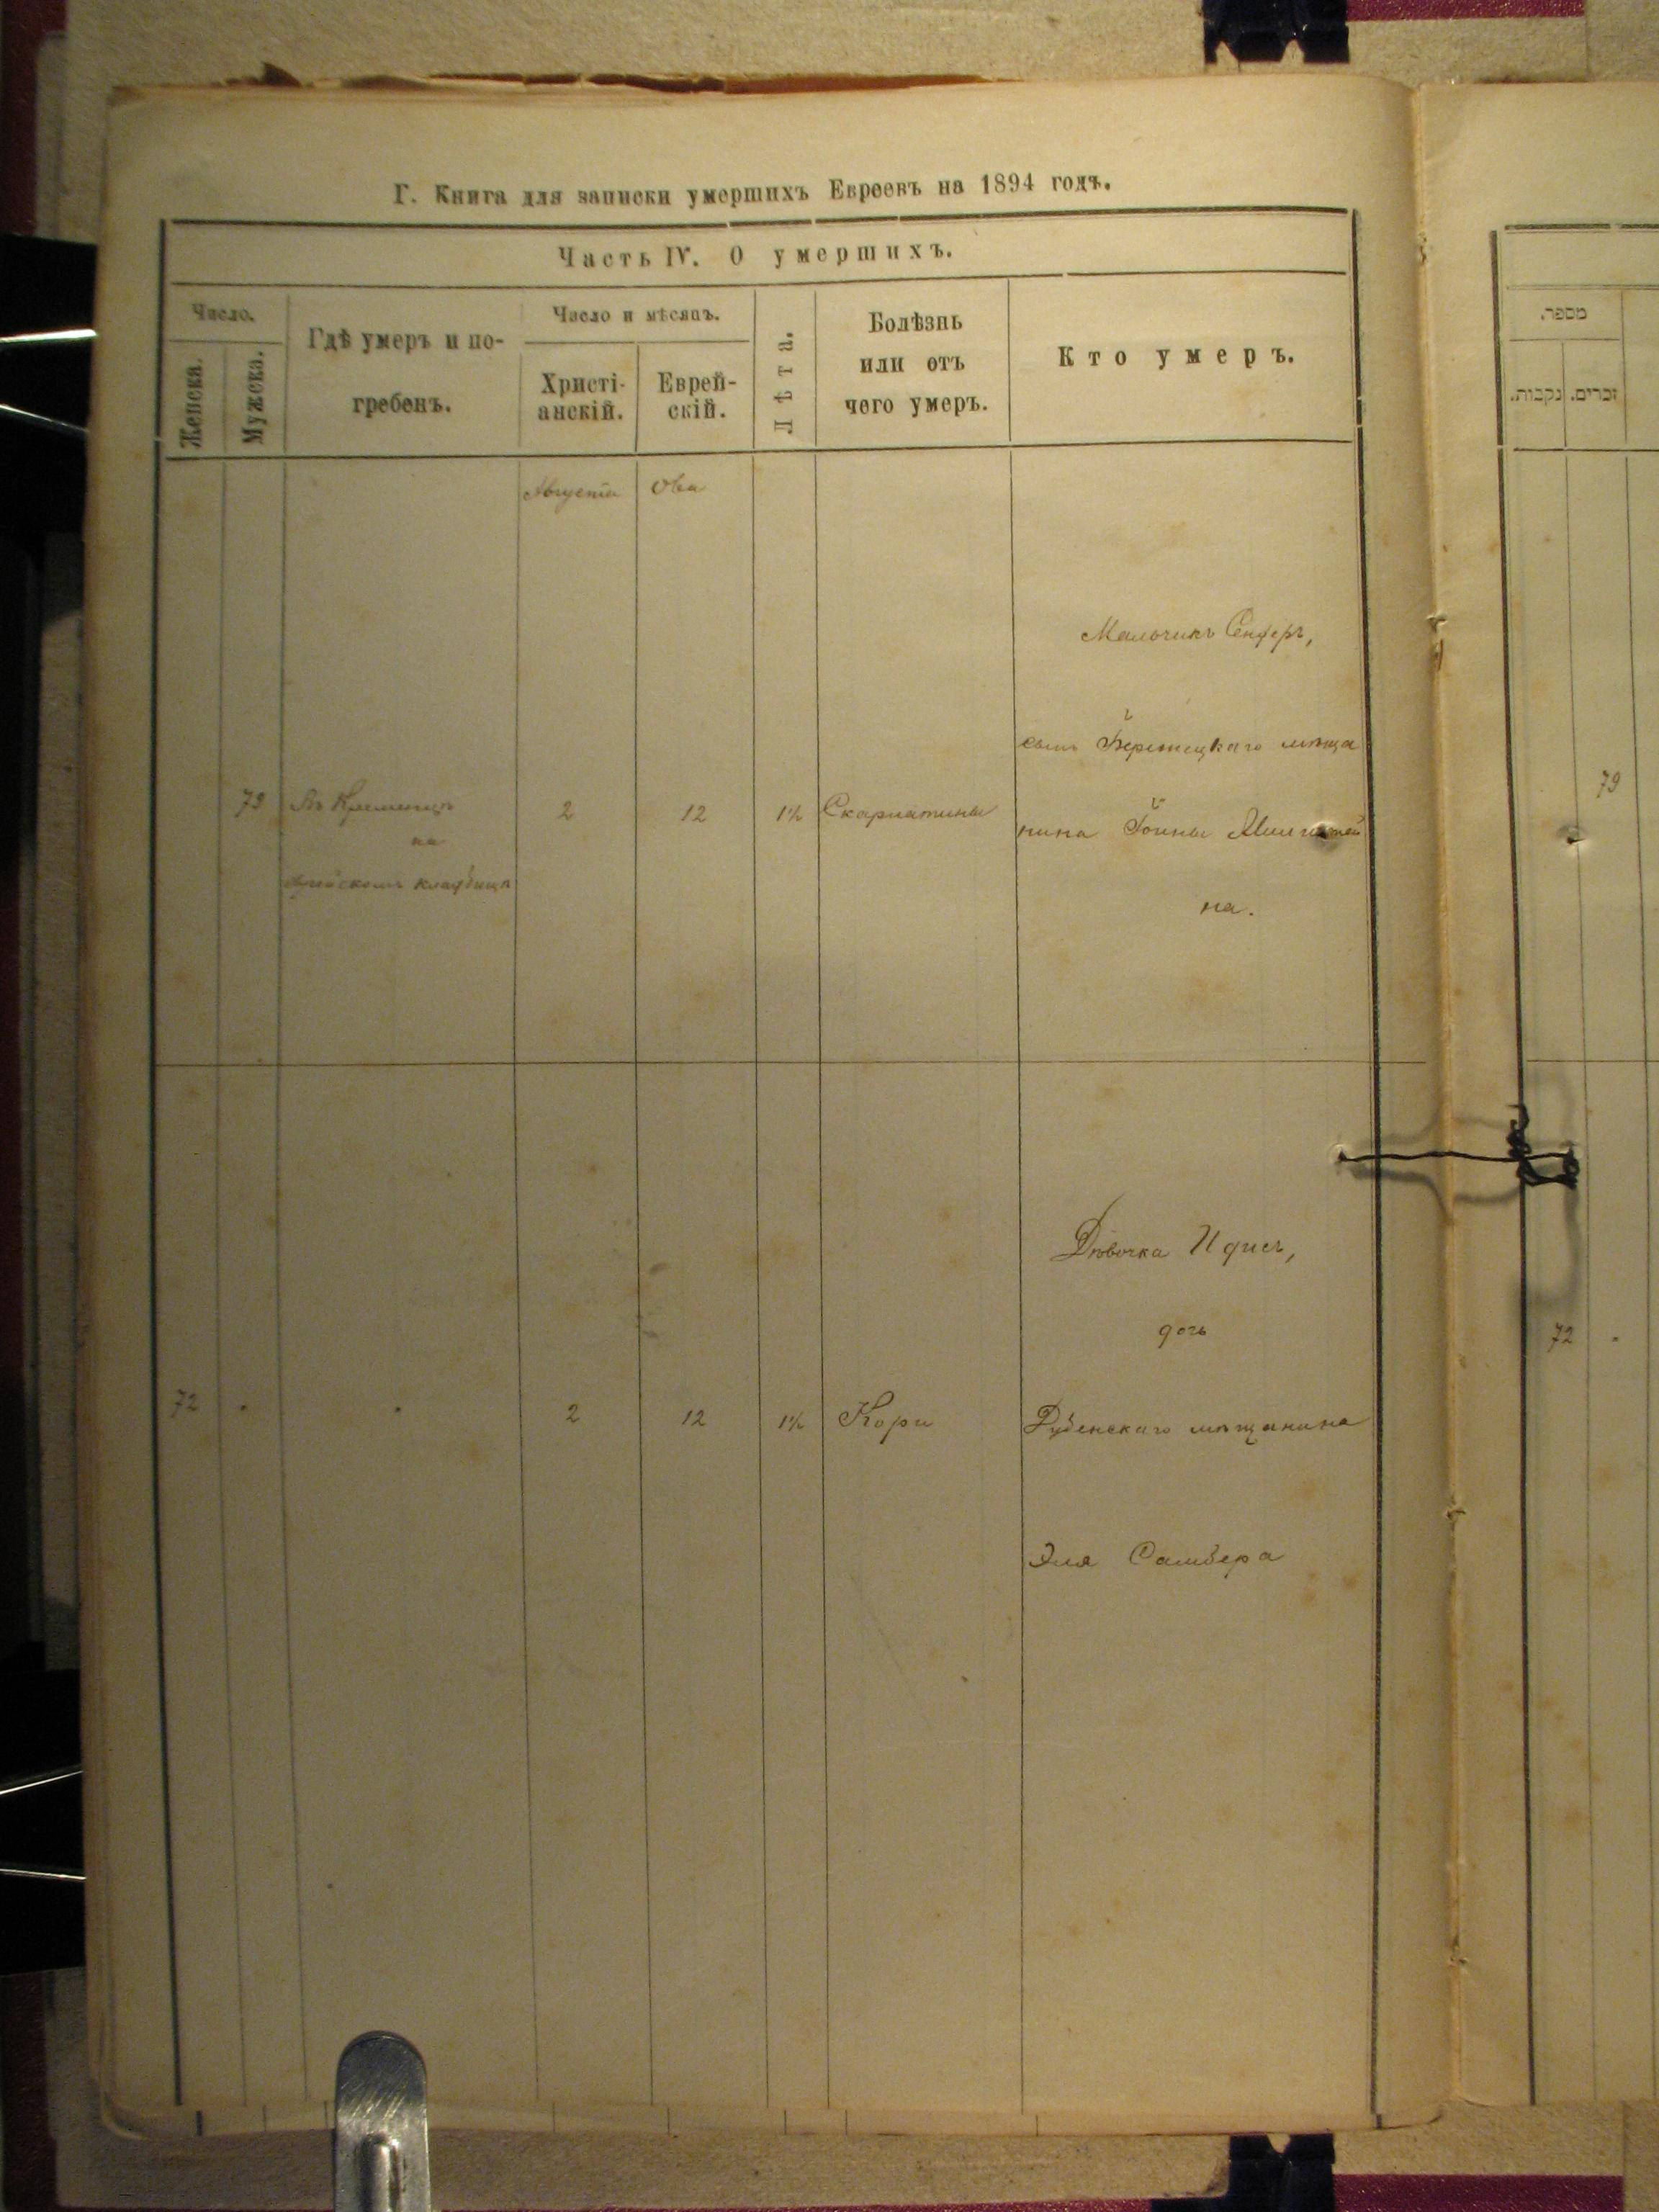 Г. Книга для записки умершихъ Евреевъ на 1894 годъ.
Часть IV. О умершихъ.
Число.
Женска.
Мужска.
Гдѣ умеръ и по-
гребенъ.
Число и мѣсяцъ.
Христі-
анскій.
Еврей-
скій.
Лѣта.
Болѣзнь
или отъ
чего умеръ.
Кто умеръ.
Августа
Ова
Мальчикъ
сынъ мѣща
79 Въ Кременцѣ 2 12 1½ Скарлатины нина
на
еврейскомъ кладбищѣ
на.
Дѣвочка
дочь
72 2 12 1½ Кори Дубенскаго мѣщанина
Эля Самбера
מספר.
נקבות.
זכרים.
79
72